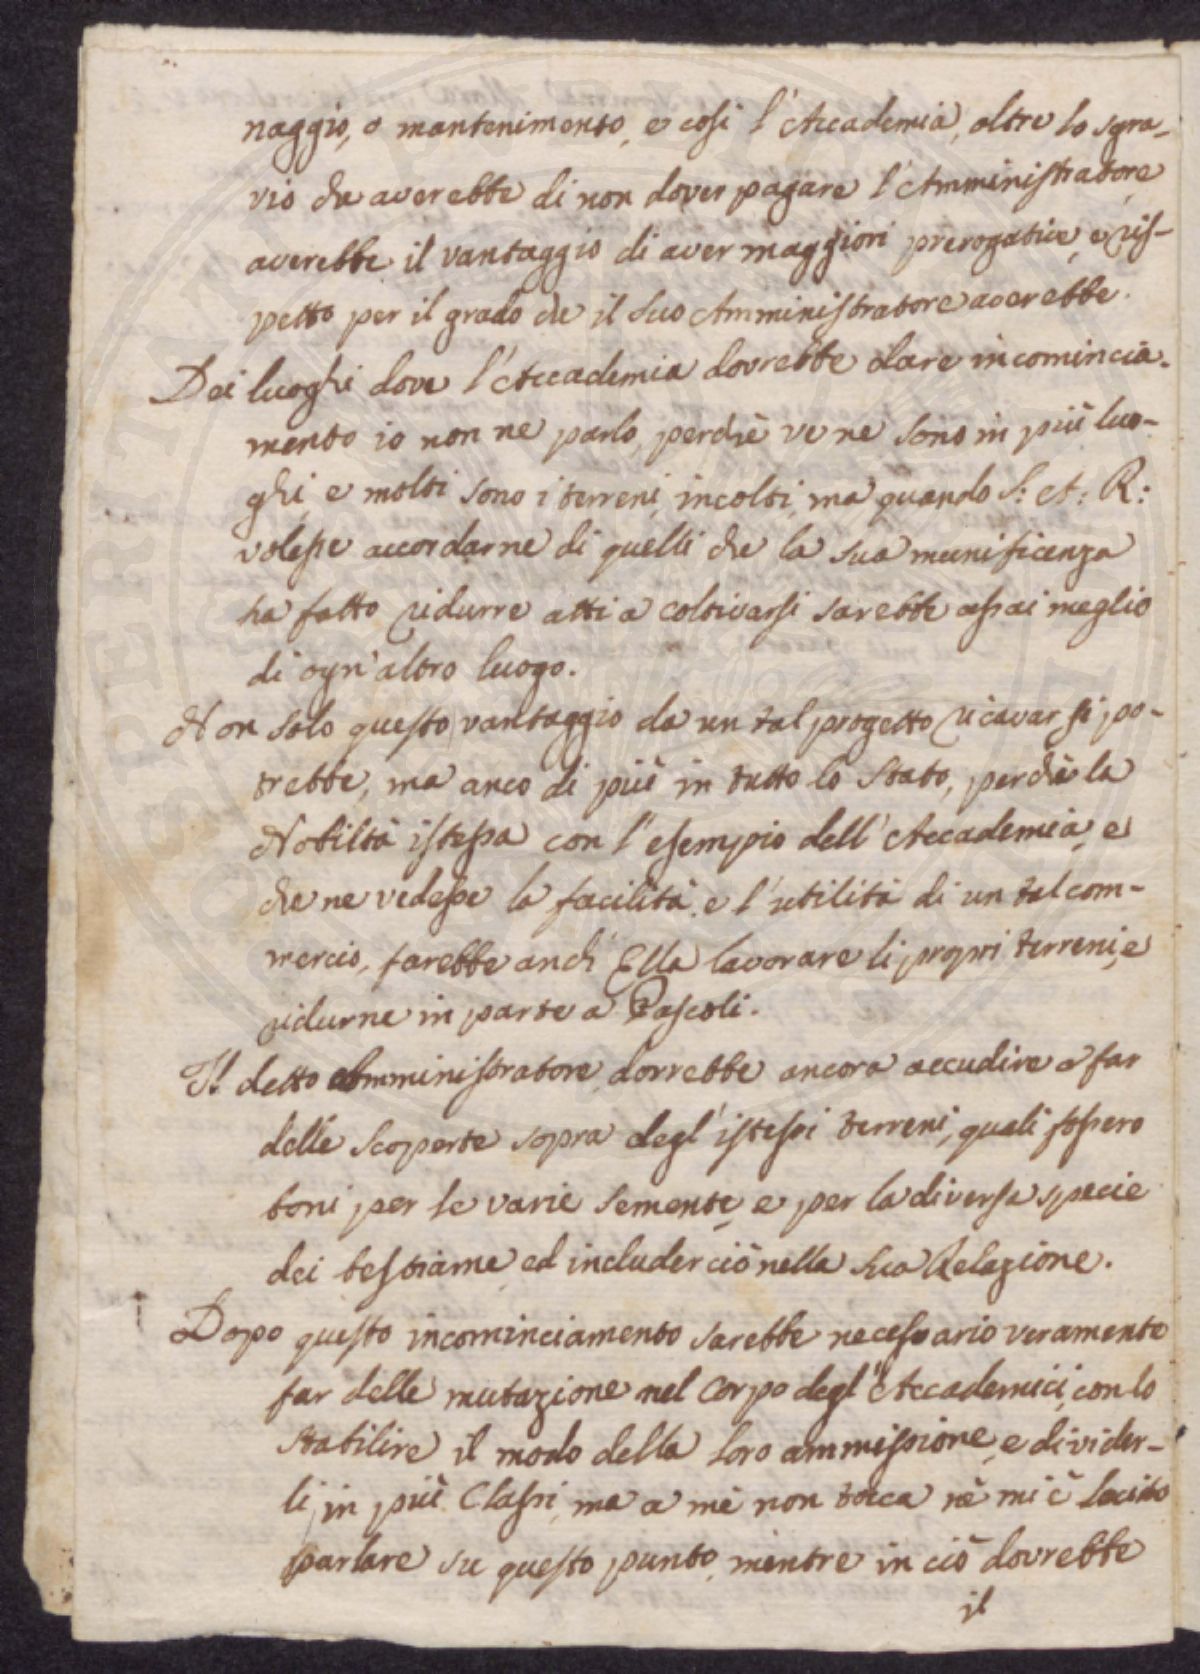 naggio, o mantenimento, e così l'Accademia, oltre lo sgra-
vio che averebbe di non dover pagare l'Amministratore
averebbe il vantaggio di aver maggiori prerogative, e ris-
petto per il grado che il suo Amministratore averebbe.
Dei luoghi dove l'Accademia dovrebbe dare incomincia-
mento io non ne parlo, perchè ve ne sono in più luo-
ghi, e molti sono i terreni, incolti, ma quando S: A: R:
volesse accordarne di quelli che la sua munificenza
ha fatto ridurre atti a coltivarsi sarebbe assai meglio
di ogn'altro luogo.
Non solo questo vantaggio da un tal progetto ricavar si po-
trebbe, ma anco di più in tutto lo Stato, perchè la
Nobiltà istessa con l'esempio dell'Accademia, e
che ne vedesse la facilità, e l'utilità di un tal com-
mercio, farebbe anch'Ella lavorare li proprj terreni, e
ridurne in parte a Pascoli.
Il detto Amministratore dovrebbe ancora accudire a far
delle scoperte sopra degl'istessi terreni, quali fossero
boni per le varie semente, e per la diversa specie
dei bestiame, ed includer ciò nella sua Relazione.
Dopo questo incominciamento sarebbe necessario veramente
far delle mutazione nel Corpo degl'Accademici, con lo
stabilire il modo della loro ammissione, e divider-
li, in più Classi, ma a mè non tocca nè mi è lecito
parlare su questo punto, mentre in ciò dovrebbe
il